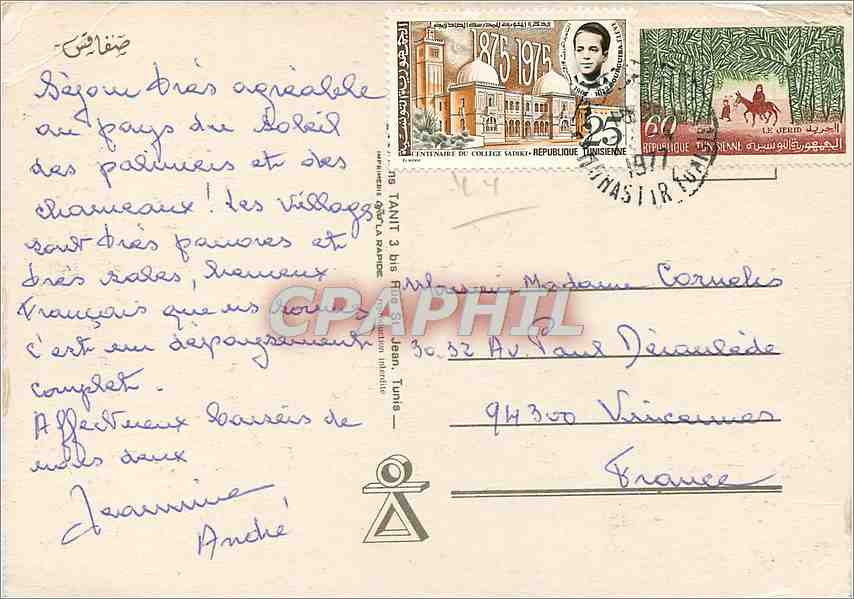 صفاقس
Séjour très agréable
au pays du soleil
des palmiers et des
chameaux! Les villages
sont très pauvres et
très sales, heureux
Français que ns sommes
c'est un dépaysement
complet.
Affectueux baisers de
nous deux
Jeannine
André
1875-1975
25
CENTENAIRE DU COLLÈGE SADIKI
RÉPUBLIQUE TUNISIENNE
60
LE JERID الجريد
RÉPUBLIQUE TUNISIENNE الجمهورية التونسية
1977
MONASTIR
TANIT 3 bis Rue St Jean, Tunis
IMPRIMERIE LA RAPIDE
reproduction interdite
CPAPHIL
Monsieur Madame Cornelis
30.32 Av. Paul Déroulède
94300 Vincennes
France